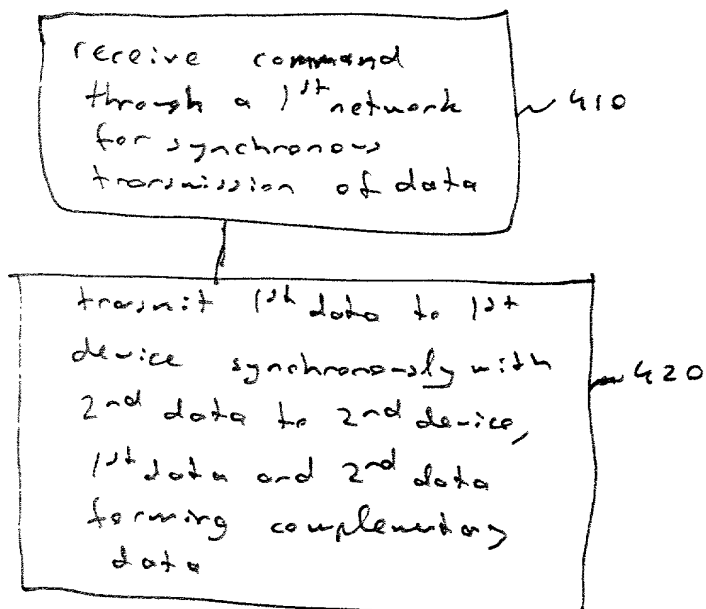 receive command
through a 1st network
for synchronous
transmission of data
410
transmit 1st data to 1st
device synchronously with
2nd data to 2nd device,
1st data and 2nd data
forming complementary
data
420